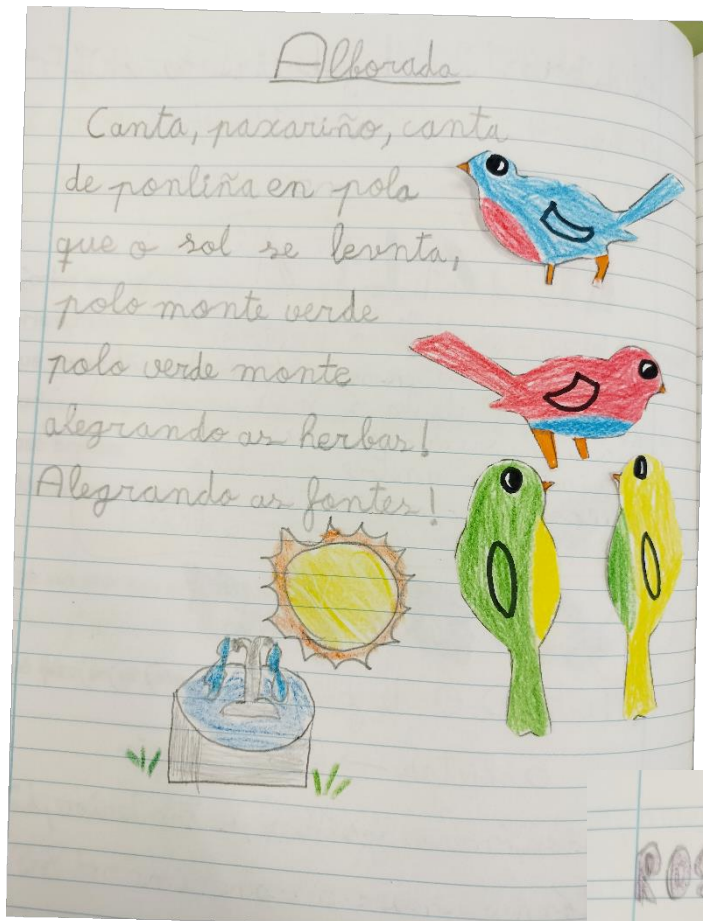 Alborada
Canta, paxariño, canta
de ponliña en pola
que o sol se levnta,
polo monte verde
polo verde monte
alegrando as herbas!
Alegrando as fontes!